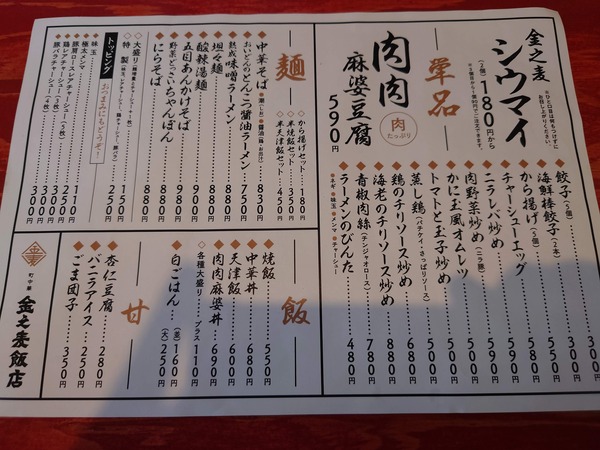 金之麦
シウマイ
(2個)180円から
※ひと口目は何もつけずに
お召し上がりください。
※2個目から1個90円でご注文できます。
単品
肉肉
麻婆豆腐
590円
肉
たっぷり
◆餃子(5個)……300円
◆海鮮棒餃子(2本)……300円
◆から揚げ(5個)……550円
◆チャーシューエッグ……550円
◆ニラレバ炒め……590円
◆肉野菜炒め(ニラ抜)
◆かに玉風オムレツ……580円
◆トマトと玉子炒め……500円
◆蒸し鶏(バチケイ・さっぱりソース)……550円
◆鶏のチリソース炒め……880円
◆海老のチリソース炒め……880円
◆青椒肉絲(チンジャオロース)……780円
◆ラーメンのびんた……480円
●ネギ●味玉●メンマ●チャーシュー
麺
◇から揚げセット…180円
◇半焼飯セット……350円
◇半天津飯セット…450円
◆中華そば……830円
●潮(しお)●醤油(鶏・お出汁)
◆おいどんのとんこつ醤油ラーメン…750円
◆熟成味噌ラーメン……880円
◆坦々麺……900円
◆酸辣湯麺……900円
◆五目あんかけそば……980円
◆野菜どっさいちゃんぽん……880円
◆にらそば……880円
◇大盛り(麺増量とチャーシュー1枚)……150円
◇特製(味玉、レアチャーシュー、鶏チャーシュー、豚バラ)……250円
トッピング
おつまみにもどうぞ!
◆味玉……110円
◆極太メンマ……110円
◆豚肩ロースレアチャーシュー(5枚)……250円
◆鶏レアチャーシュー(3枚)……300円
◆豚バラチャーシュー(4枚)……300円
飯
◆焼飯……550円
◆中華丼……680円
◆天津飯……600円
◆肉肉麻婆丼……690円
◇各種大盛り プラス…110円
◆白ごはん……(並)160円
(大)250円
甘
◆杏仁豆腐……280円
◆バニラアイス……250円
◆ごま団子……350円
金麦
町中華
金之麦飯店